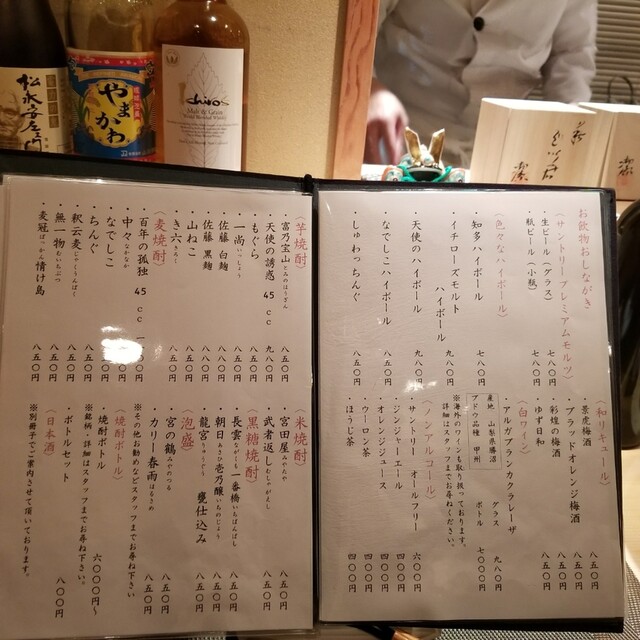 松永安左エ門
やまかわ
Ichiro's
Malt & Grain
World Blended Whisky
お飲物おしながき
〈サントリープレミアムモルツ〉
・生ビール(グラス) 七八〇円
・瓶ビール(小瓶) 七八〇円
〈色々なハイボール〉
・知多ハイボール 七八〇円
・イチローズモルト
ハイボール 九八〇円
・天使のハイボール 九八〇円
・なでしこハイボール 八五〇円
・しゅわっちんぐ 八五〇円
〈和リキュール〉
・景虎梅酒 八五〇円
・ブラッドオレンジ梅酒 八五〇円
・彩煌の梅酒 八五〇円
・ゆず日和 八五〇円
〈白ワイン〉
・アルガブランカクラレーザ
グラス 九八〇円
ボトル 七〇〇〇円
産地 山梨県勝沼
ブドウ品種 甲州
※海外のワインも取り扱っております。
・詳細はスタッフまでお尋ねください。
〈ノンアルコール〉
・サントリー オールフリー 六〇〇円
・ジンジャーエール 四〇〇円
・オレンジジュース 四〇〇円
・ウーロン茶 四〇〇円
・ほうじ茶 四〇〇円
〈芋焼酎〉
・富乃宝山とみのほうざん 八五〇円
・天使の誘惑 45cc 九八〇円
・もぐら 八五〇円
・一尚いっしょう 八五〇円
・佐藤 白麹 八八〇円
・佐藤 黒麹 八八〇円
・山ねこ 八五〇円
・き六きろく 八五〇円
〈麦焼酎〉
・百年の孤独 45cc
・中々なかなか 八五〇円
・なでしこ 八五〇円
・ちんぐ 八五〇円
・釈云麦じゃくうんばく 八五〇円
・無一物むいちぶつ 八五〇円
・麦冠はっかん情け島 八五〇円
〈米焼酎〉
・宮田屋みやたや 八五〇円
・武者返しむしゃがえし 八五〇円
〈黒糖焼酎〉
・長雲ながくも一番橋いちばんばし 八五〇円
・朝日あさひ壱乃醸いちのじょう 八五〇円
・龍宮りゅうぐう 甕仕込み 八五〇円
〈泡盛〉
・宮の鶴みやのつる 八五〇円
・カリー春雨はるさめ 八五〇円
※その他お勧めなどスタッフまでお尋ね下さい
〈焼酎ボトル〉
・焼酎ボトル 六〇〇〇円〜
※銘柄・詳細はスタッフまでお尋ね下さい。
・ボトルセット 八〇〇円
〈日本酒〉
※別冊子でご案内させて頂いております。